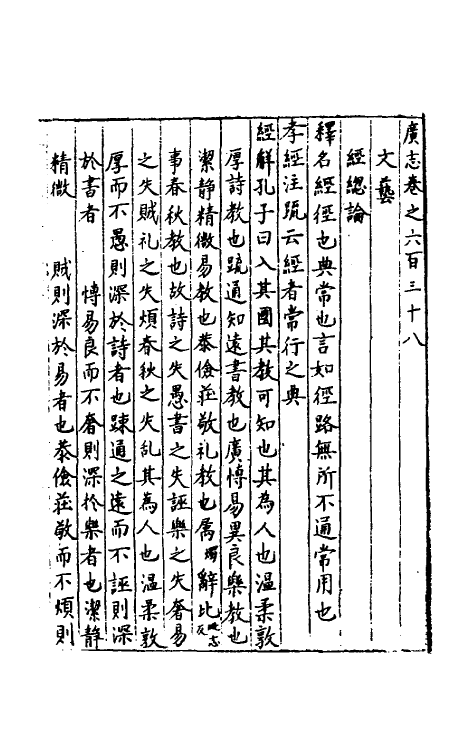 廣志卷之六百三十八
文藝
經總論
釋名經徑也典常也言如徑路無所不通常用也
孝經注䟽云經者常行之典
經解孔子曰入其國其教可知也其為人也溫柔敦
厚詩教也䟽通知遠書教也廣愽易異良樂教也
潔静精微易教也恭儉莊敬礼教也属辭比
事春秋教也故詩之失愚書之失誣樂之失奢易
之失賊礼之失煩春秋之失乱其為人也温柔敦
厚而不愚則深於詩者也踈通之遠而不誣則深
於書者 愽易良而不奢則深於樂者也潔静
精微 賊則深於易者也恭儉莊敬而不煩則